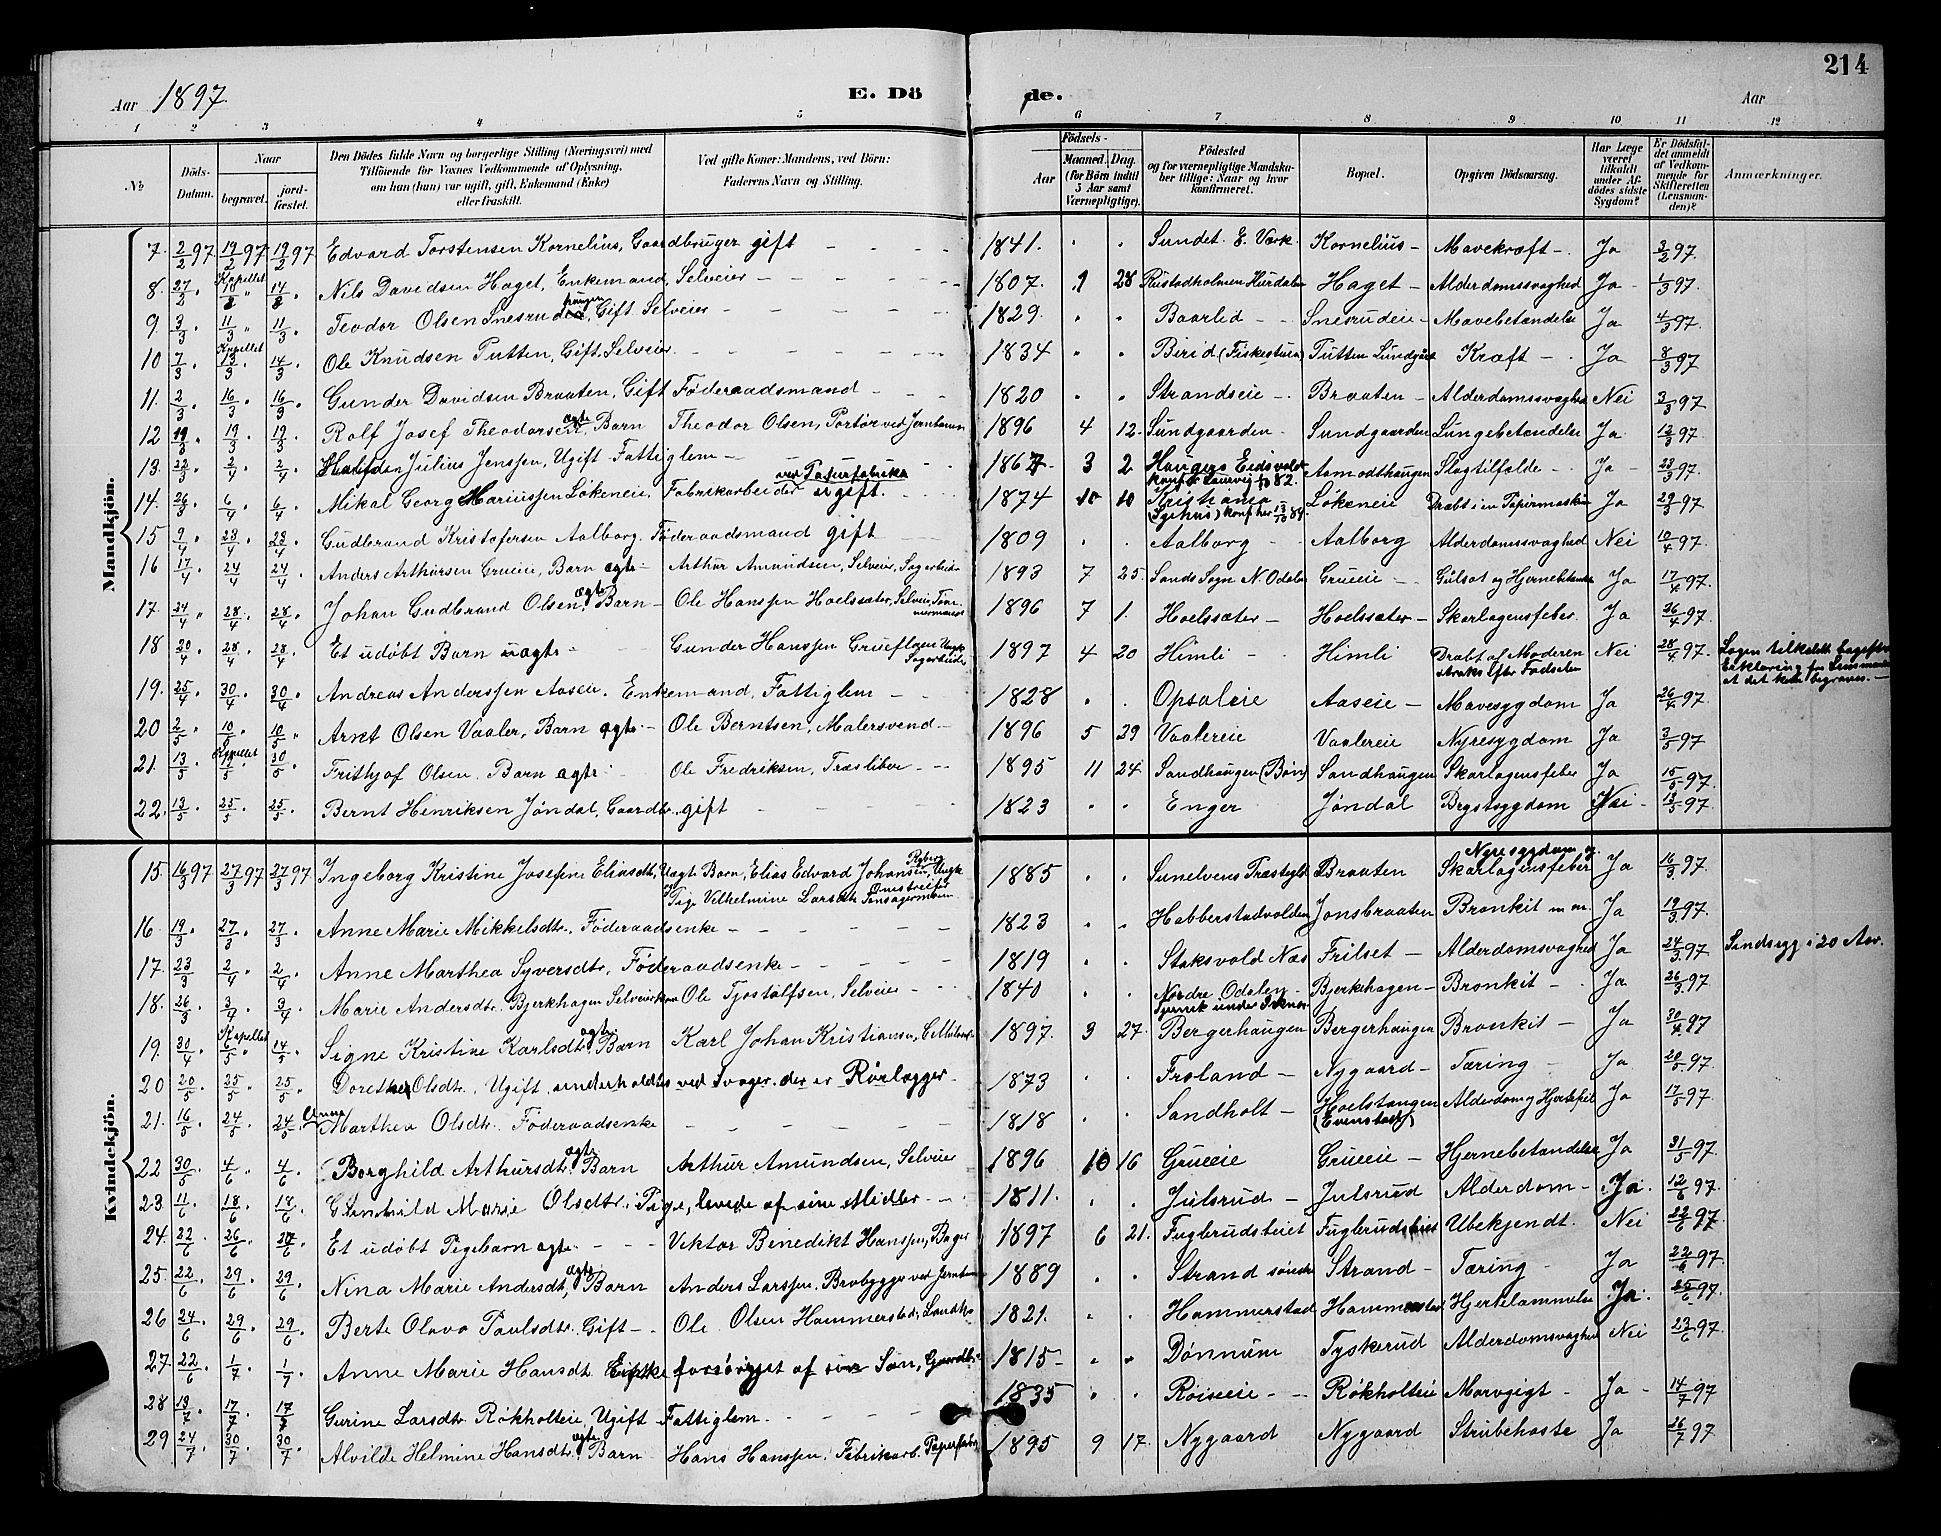 214
Aar 1897. E. Döde. Aar
1 2 3 4 5 6 7 8 9 10 11 12
№ Döds-Datum. Naar begravet. jord-fæstet. Den Dödes fulde Navn og borgerlige Stilling (Næringsvei) med Tilföiende for Voxnes Vedkommende af Oplysning, om han (hun) var ugift, gift, Enkemand (Enke) eller fraskilt. Ved gifte Koner: Mandens, ved Börn: Faderens Navn og Stilling. Födsels- Aar Maaned. Dag. (for Börn indtil 5 Aar samt Værnepligtige). Födested og for værnepligtige Mandskaber tillige: Naar og hvor konfirmeret. Bopæl. Opgiven Dödsaarsag. Har Læge været tilkaldt under Afdödes sidste Sygdom? Er Dödsfaldet anmeldt af Vedkommende for Skifteretten (Lensmanden)? Anmærkninger.
Mandkjön.
7 2/2 97 19/2 97 19/2 97 Edvard Torstensen Kornelius, Gaardbruger gift 1841. Sundet E. Værk. Kornelius Mavekræft Ja 3/2 97.
8. Kapellet 14/2 Nils Davidsen Haget, Enkemand, Selveier 1807. 9 28 Rustadholmen Hurdalen Haget Alderdomssvaghed Ja 1/3 97.
9 3/3 11/3 11/3 Teodor Olsen Snesrud, Gift Selveier 1829. Baarlid Snesrudeie Mavebetændelse Ja 4/3 97.
10 7/3 Kapellet 13/3 14/3 Ole Knudsen Tutten, Gift, Selveier 1834 Birid (Fiskestuen) Tutten Sundgård Kræft Ja 8/3 97
11. 2/3 16/3 16/3 Gunder Davidsen Braaten, Gift Föderaadsmand 1820 Strandseie Braaten Alderdomssvaghed Nei 3/3 97.
12 19/3 19/3 Rolf Josef Theodorsen, ægte Barn Theodor Olsen, Portør ved Jernbanen 1896 4 12. Sundgaarden Sundgaarden Lungebetændelse Ja 12/3 97
13. 23/3 2/4 2/4 Halfdan Julius Jenssen, Ugift Fattiglem 1867 3 2 Haugers Eidsvold konf. Laurvig 82. Aamodthaugen Slagtilfælde Ja 23/3 97.
14. 26/3 6/4 6/4 Mikal Georg Mariussen Løkeneie, Fabrikarbeider ved Papirfabrika ugift. 1874 10 10 Kristiania (Sgehus) konf her 13/10 89 Løkeneie Dræbt i en Papirmaskin Ja 29/3 97
15 9/4 23/4 23/4 Gudbrand Kristofersen Aalborg, Föderaadsmand gift 1809 Aalborg Aalborg Alderdomssvaghed Nei 10/4 97.
16 17/4 24/4 24/4 Anders Arthursen Grueie, Barn ægte Arthur Amundsen, Selveier, Sagarbeider 1893 7 25. Sands Sogn N. Odalen Grueie Gulsot og Hjernebetændelse Ja 17/4 97.
17. 24/4 28/4 28/4 Johan Gudbrand Olsen, ægte Barn Ole Hanssen Hoelssæter, Selveier, Tømmermand 1896 7 1. Hoelssæter Hoelssæter Skarlagensfeber Ja 26/4 97.
18 20/4 28/4 28/4 Et udøbt Barn uægte Gunder Hanssen Grueflogen Ungk Sagarbeider 1897 4 20 Himli Himli Dræbt af Moderen straks efter Fødselen Nei 28/4 97.
19. 25/4 30/4 30/4 Andreas Anderssen Aaseie, Enkemand, Fattiglem 1828 Opsaleie Aaseie Mavesygdom Ja 26/4 97.
20 2/5 10/5 10/5 Arnt Olsen Vaaler, Barn ægte Ole Berntsen, Malersvend 1896 5 29 Vaalereie Vaalereie Nyresygdom Ja 3/5 97
21. 13/5 Kapellet 30/5 Frithjof Olsen, Barn ægte Ole Fredriksen, Træsliber 1895 11 24 Sandhaugen (Bøn) Sandhaugen Skarlagensfeber Ja 15/5 97.
22. 13/5 25/5 25/5 Bernt Henriksen Jøndal, Gaardbr., gift 1823 Enger Jøndal Brystsygdom Nei 13/5 97.
Kvindekjön.
15. 16/3 97 27/3 97 27/3 97 Ingeborg Kristine Josefine Eliasdtr, Uægte Barn, Elias Edvard Johansen, Ungk og Pige Vilhelmine Larsdtr 1885 Sunelvens Træsliberi Braaten Nyresygdom og Skarlagensfeber Ja 16/3 97.
16 19/3 27/3 27/3 Anne Marie Mikkelsdtr., Föderaadsenke 1823 Habberstadvolden Jonsbraaten Bronkit m m. Ja 19/3 97.
17. 23/3 2/4 2/4 Anne Marthea Syversdtr, Föderaadsenke 1819 Staksvold Næs Frilset Alderdomssvaghed Ja 24/3 97 Sindssyg i 20 Aar.
18. 26/3 3/4 3/4 Marie Andersdtr Bjerkehagen Selveierkone Ole Tjostolfsen, Selveier 1840 Nordre Odalen Bjerkehagen Bronkit Ja 26/3 97.
19. 30/4 Kapellet 6/5 14/5 Signe Kristine Karlsdtr ægte Barn Karl Johan Kristiansen, 1897. 3 27. Bergerhaugen Bergerhaugen Bronkit Ja 30/4 97
20 20/5 25/5 25/5 Dorethea Olsdtr., Ugift, underholdtes ved Svoger. der er Rørlægger 1873 Froland Nygaard Tæring Ja 20/5 97.
21. 16/5 24/5 24/5 Anne Marthea Olsdtr. Föderaadsenke 1818 Sandholt Hoelstangen (Evenstad) Alderdom og Hjertefeil Ja 17/5 97.
22 30/5 4/6 4/6 Borghild Arthursdtr, ægte Barn Arthur Amundsen, Selveier 1896 10 16 Grueeie Grueeie Hjernebetændelse Ja 31/5 97.
23. 11/6 18/6 18/6 Gunhild Marie Olsdtr, Pige, levede af sine Midler 1811. Julsrud Julsrud Alderdom Ja. 12/6 97.
24. 22/6 26/6 Et udøbt Pigebarn ægte Viktor Benedikt Hanssen, Bager 1897 6 21. Fuglerudsbeiet Fuglerudsbeiet Ubekjendt. Nei 22/6 97.
25 22/6 29/6 29/6 Nina Marie Andersdtr, ægte Barn Anders Larssen, Brobygger ved Jernbanen 1889 Strand søndre Strand Tæring Ja 22/6 97.
26 24/6 29/6 29/6 Berte Olava Paulsdtr. Gift Ole Olsen Hammerstad, Landh. 1821. Hammerstad Hammerstad Hjertelammelse Ja. 25/6 97.
27 22/6 1/7 1/7 Anne Marie Hansdtr. Enke forsørget af sin Søn, Gaardbr. 1815 Dønnum Tyskerud Alderdomsvaghed Nei 23/6 97.
28 13/7 17/7 17/7 Gurine Larsdtr Røkholteie, Ugift Fattiglem 1835 Roiseeie Røkholteie Marvgigt Ja 14/7 97
29 24/7 30/7 30/7 Alvilde Helmine Hansdtr, ægte Barn Hans Hanssen, Fabrikarb. Papirfabr. 1895 9 17. Nygaard Nygaard Strubehoste Ja 26/7 97